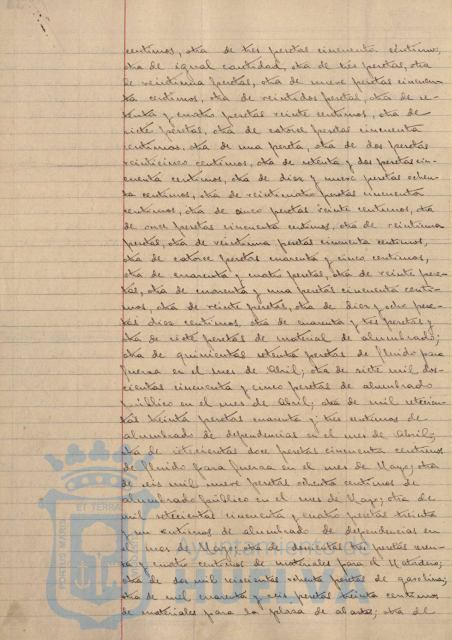 centimos, otra de tres pesetas cincuenta centimos,
otra de igual cantidad, otra de tres pesetas, otra
de veintiuna pesetas, otra de nueve pesetas cincuen-
ta centimos, otra de veintidos pesetas, otra de se-
tenta y cuatro pesetas veinte centimos, otra de
siete pesetas, otra de catorce pesetas cincuenta
centimos, otra de una peseta, otra de dos pesetas
veinticinco centimos, otra de setenta y dos pesetas cin-
cuenta centimos, otra de diez y nueve pesetas ochen-
ta centimos, otra de veinticuatro pesetas cincuenta
centimos, otra de cinco pesetas veinte centimos, otra
de once pesetas cincuenta centimos, otra de veintiuna
pesetas, otra de veintiuna pesetas cincuenta centimos,
otra de catorce pesetas cuarenta y cinco centimos,
otra de cuarenta y cuatro pesetas, otra de veinte pese-
tas, otra de cuarenta y una pesetas cincuenta centi-
mos, otra de veinte pesetas, otra de diez y ocho pese-
tas diez centimos, otra de cuarenta y tres pesetas y
otra de siete pesetas de material de alumbrado;
otra de quinientas setenta pesetas de fluido para
fuerza en el mes de Abril; otra de siete mil dos-
cientas cincuenta y cinco pesetas de alumbrado
público en el mes de Abril; otra de mil setecien-
tas treinta pesetas cuarenta y tres centimos de
alumbrado de dependencias en el mes de Abril;
otra de setecientas doce pesetas cincuenta centimos
de fluido para fuerza en el mes de Mayo; otra
de seis mil nueve pesetas ochenta centimos de
alumbrado público en el mes de Mayo; otra de
mil setecientas cincuenta y cuatro pesetas treinta
y un centimos de alumbrado de dependencias en
el mes de Mayo; otra de doscientas tres pesetas
y cuatro centimos de materiales para el Matadero;
otra de dos mil seiscientas ochenta pesetas de gasolina;
otra de mil cuarenta y seis pesetas treinta centimos
de materiales para la plaza de abastos; otra de
ET TERRA